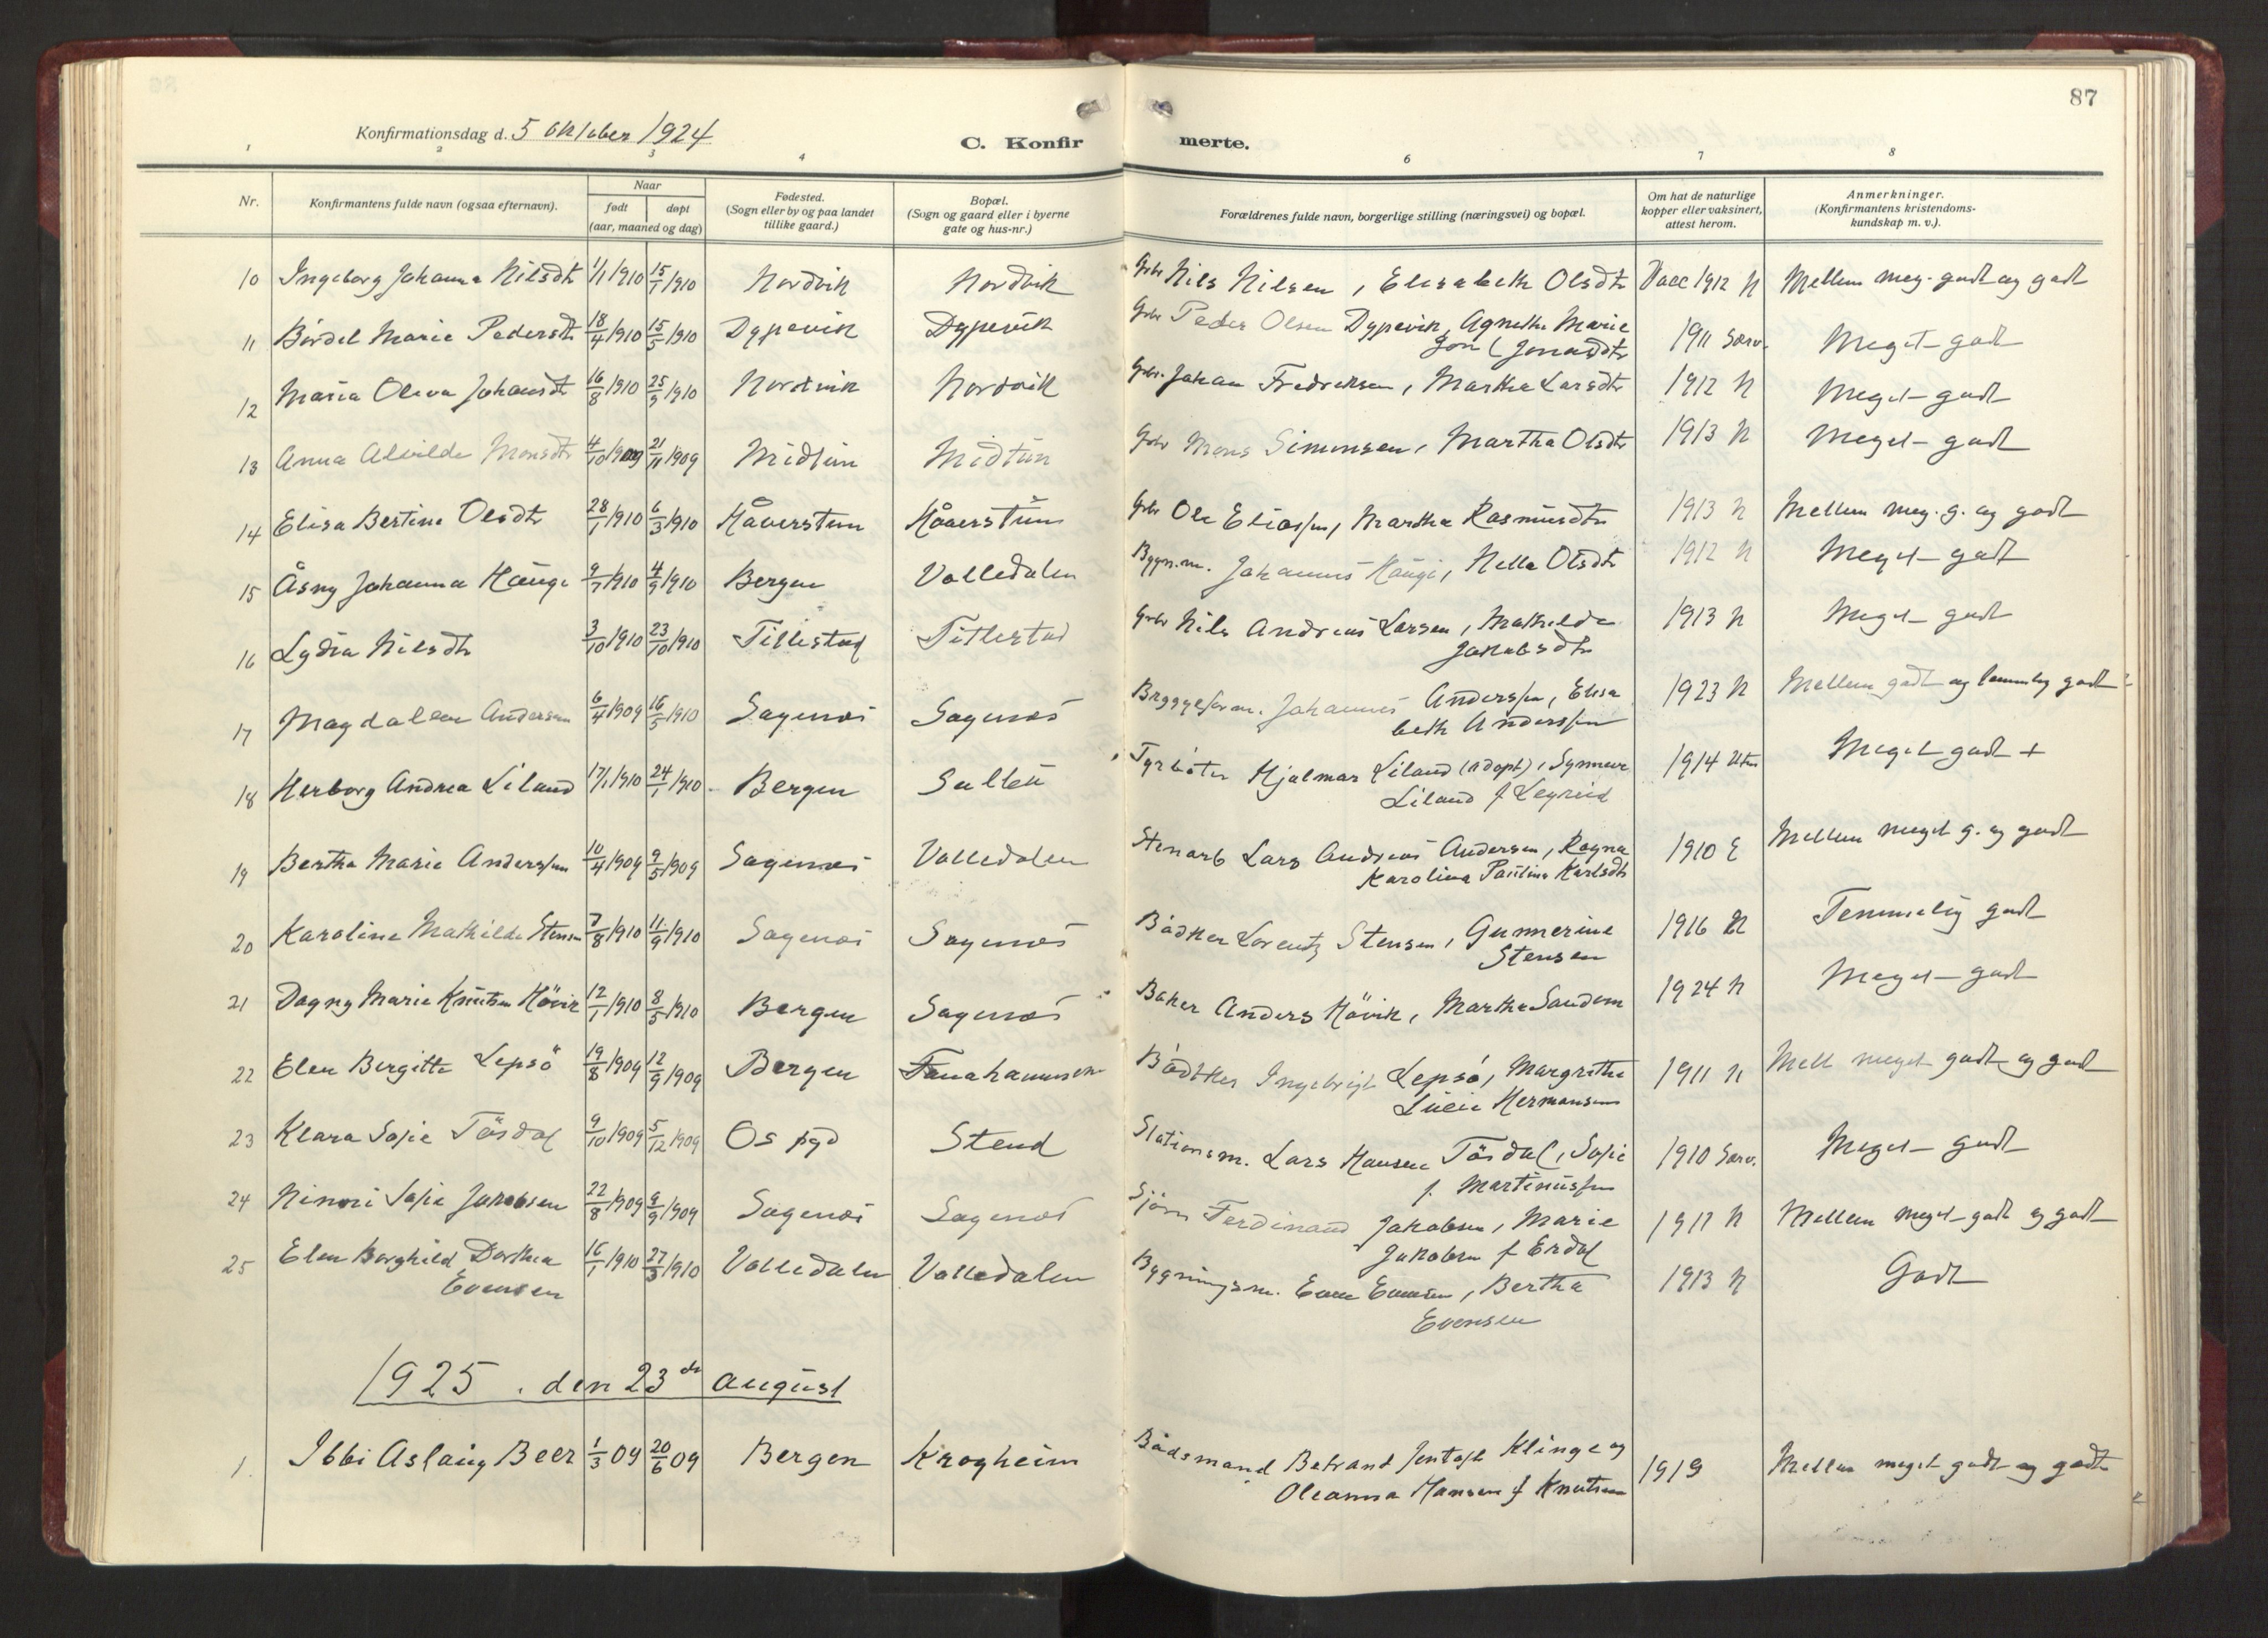 87
Konfirmationsdag d. 5 oktober 1924
C. Konfir merte.
1 2 3 4 6 7 8
Nr.
Konfirmantens fulde navn (ogsaa efternavn).
Naar
født døpt
(aar, maaned og dag)
Fødested.
(Sogn eller by og paa landet
tillike gaard.)
Bopæl.
(Sogn og gaard eller i byerne
gate og hus-nr.)
Forældrenes fulde navn, borgerlige stilling (næringsvei) og bopæl.
Om hat de naturlige
kopper eller vaksinert,
attest herom.
Anmerkninger.
(Konfirmantens kristendoms-
kundskap m. v.).
10 Ingeborg Johanna Nilsdtr 1/1 1910 15/1 1910 Nordvik Nordvik Gbr Nils Nilsen, Elisabeth Olsdtr Vacc 1912 N Mellem meg. godt og godt
11 Bordel Marie Pedersdtr 18/4 1910 15/5 1910 Dypevik Dypevik Gbr Peder Olsen Dypevik, Agnethe Marie
Jonasdtr 1911 Sørv. Meget godt
12 Maria Oleva Johansdt 16/8 1910 25/9 1910 Nordvik Nordvik Gbr. Johan Fredriksen, Martha Larsdtr 1912 N Meget godt
13 Anna Alvilde Monsdtr 4/10 1909 21/11 1909 Midtün Midtün Gbr Mons Simonsen, Martha Olsdtr 1913 N Meget godt
14 Elisa Bertine Olsdtr 28/1 1910 6/3 1910 Håverstun Håverstün Gbr Ole Eliassen, Martha Rasmusdtr 1913 N Mellem meg. g. og godt
15 Åsny Johanna Hauge 9/7 1910 4/9 1910 Bergen Valledalen Bygn.m. Johannes Haugi, Nella Olsdtr 1912 N Meget godt
16 Lydia Nilsdtr 3/10 1910 23/10 1910 Titlestad Titlestad Gbr Nils Andreas Larsen, Mathilde
Jakobsdtr 1913 N Meget godt
17 Magdalene Andersen 6/4 1909 16/5 1910 Søgenæs Søgenæs Bryggeform. Johannes Anderssen, Elisa
beth Anderssen 1923 N Mellem godt og temmelig godt
18 Herborg Andrea Liland 17/1 1910 24/1 1910 Bergen Hjalmar Liland (adopt), Synneve
Liland f 1914 Meget godt +
19 Bertha Marie Anderssen 10/4 1909 9/5 1909 Søgenæs Valledalen Stenarb Lars Andreas Andersen, Ragna
Karolina Paulina Karlsdtr 1910 E Mellem meget g. og godt
20 Karoline Mathilde Stensen 7/8 1910 11/9 1910 Søgenæs Søgenæs Bådker Lorentz Stensen, Gunnerine
Stensen 1916 N Temmelig godt
21 Dagny Marie Knutsen Hövik 12/1 1910 8/5 1910 Bergen Søgenæs Baker Anders Hövik, Martha 1924 N Meget godt
22 Elen Bergitte Lepsö 19/8 1909 12/9 1909 Bergen Fanahammeren Bödtker Ingebrigt Lepsö, Margrethe
Lucie Hermansen 1911 N Mell meget godt og godt
23 Klara Sofie Tösdal 9/10 1909 5/12 1909 Os pgd Stend Stationsm. Lars Hansen Tösdal, Sofie
f. Martinussen 1910 Sørv. Meget godt
24 Ninni Sofie Jakobsen 22/8 1909 9/9 1909 Søgenæs Søgenæs Sjöm Ferdinand Jakobsen, Marie
Jakobsen f Erdal 1917 N Mellem meget godt og godt
25 Elen Borghild Dorthea
Evensen 16/1 1910 27/3 1910 Valledalen Valledalen Bygningsm. Even Evensen, Bertha
Evensen 1913 N Godt
1925. den 23de august
1. Ibbi Aslaug Beer 1/3 09 20/6 09 Bergen Krogheim Bådsmand Klinge og
Oleanna Hansen f Knutsen 1919 Mellem meget godt og godt